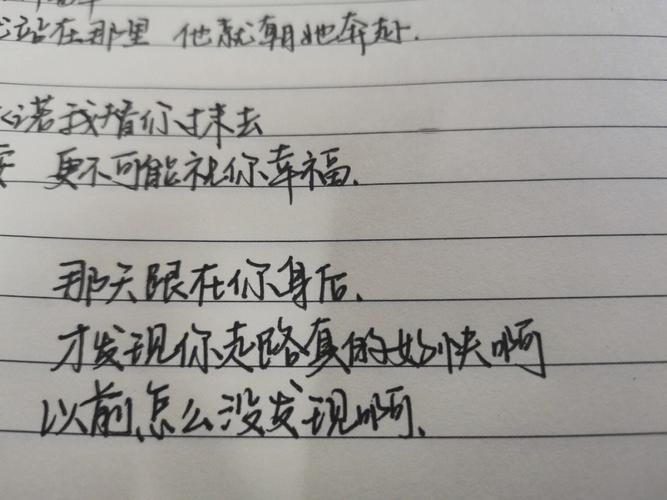 站在那里 他就朝她奔赴.
诺我替你抹去
更不可能祝你幸福.
那天跟在你身后.
才发现你走路真的好快啊
以前怎么没发现啊.